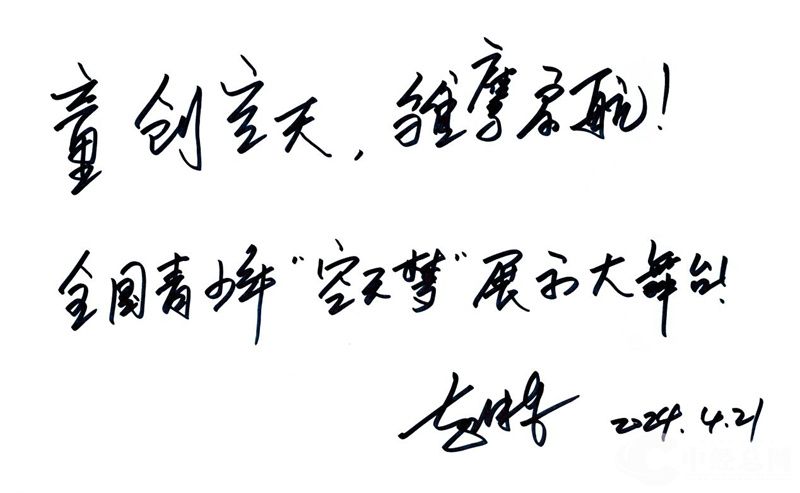 童创空天，雏鹰启航！
全国青少年“空天梦”展示大舞台！
2024.4.21
中经总网